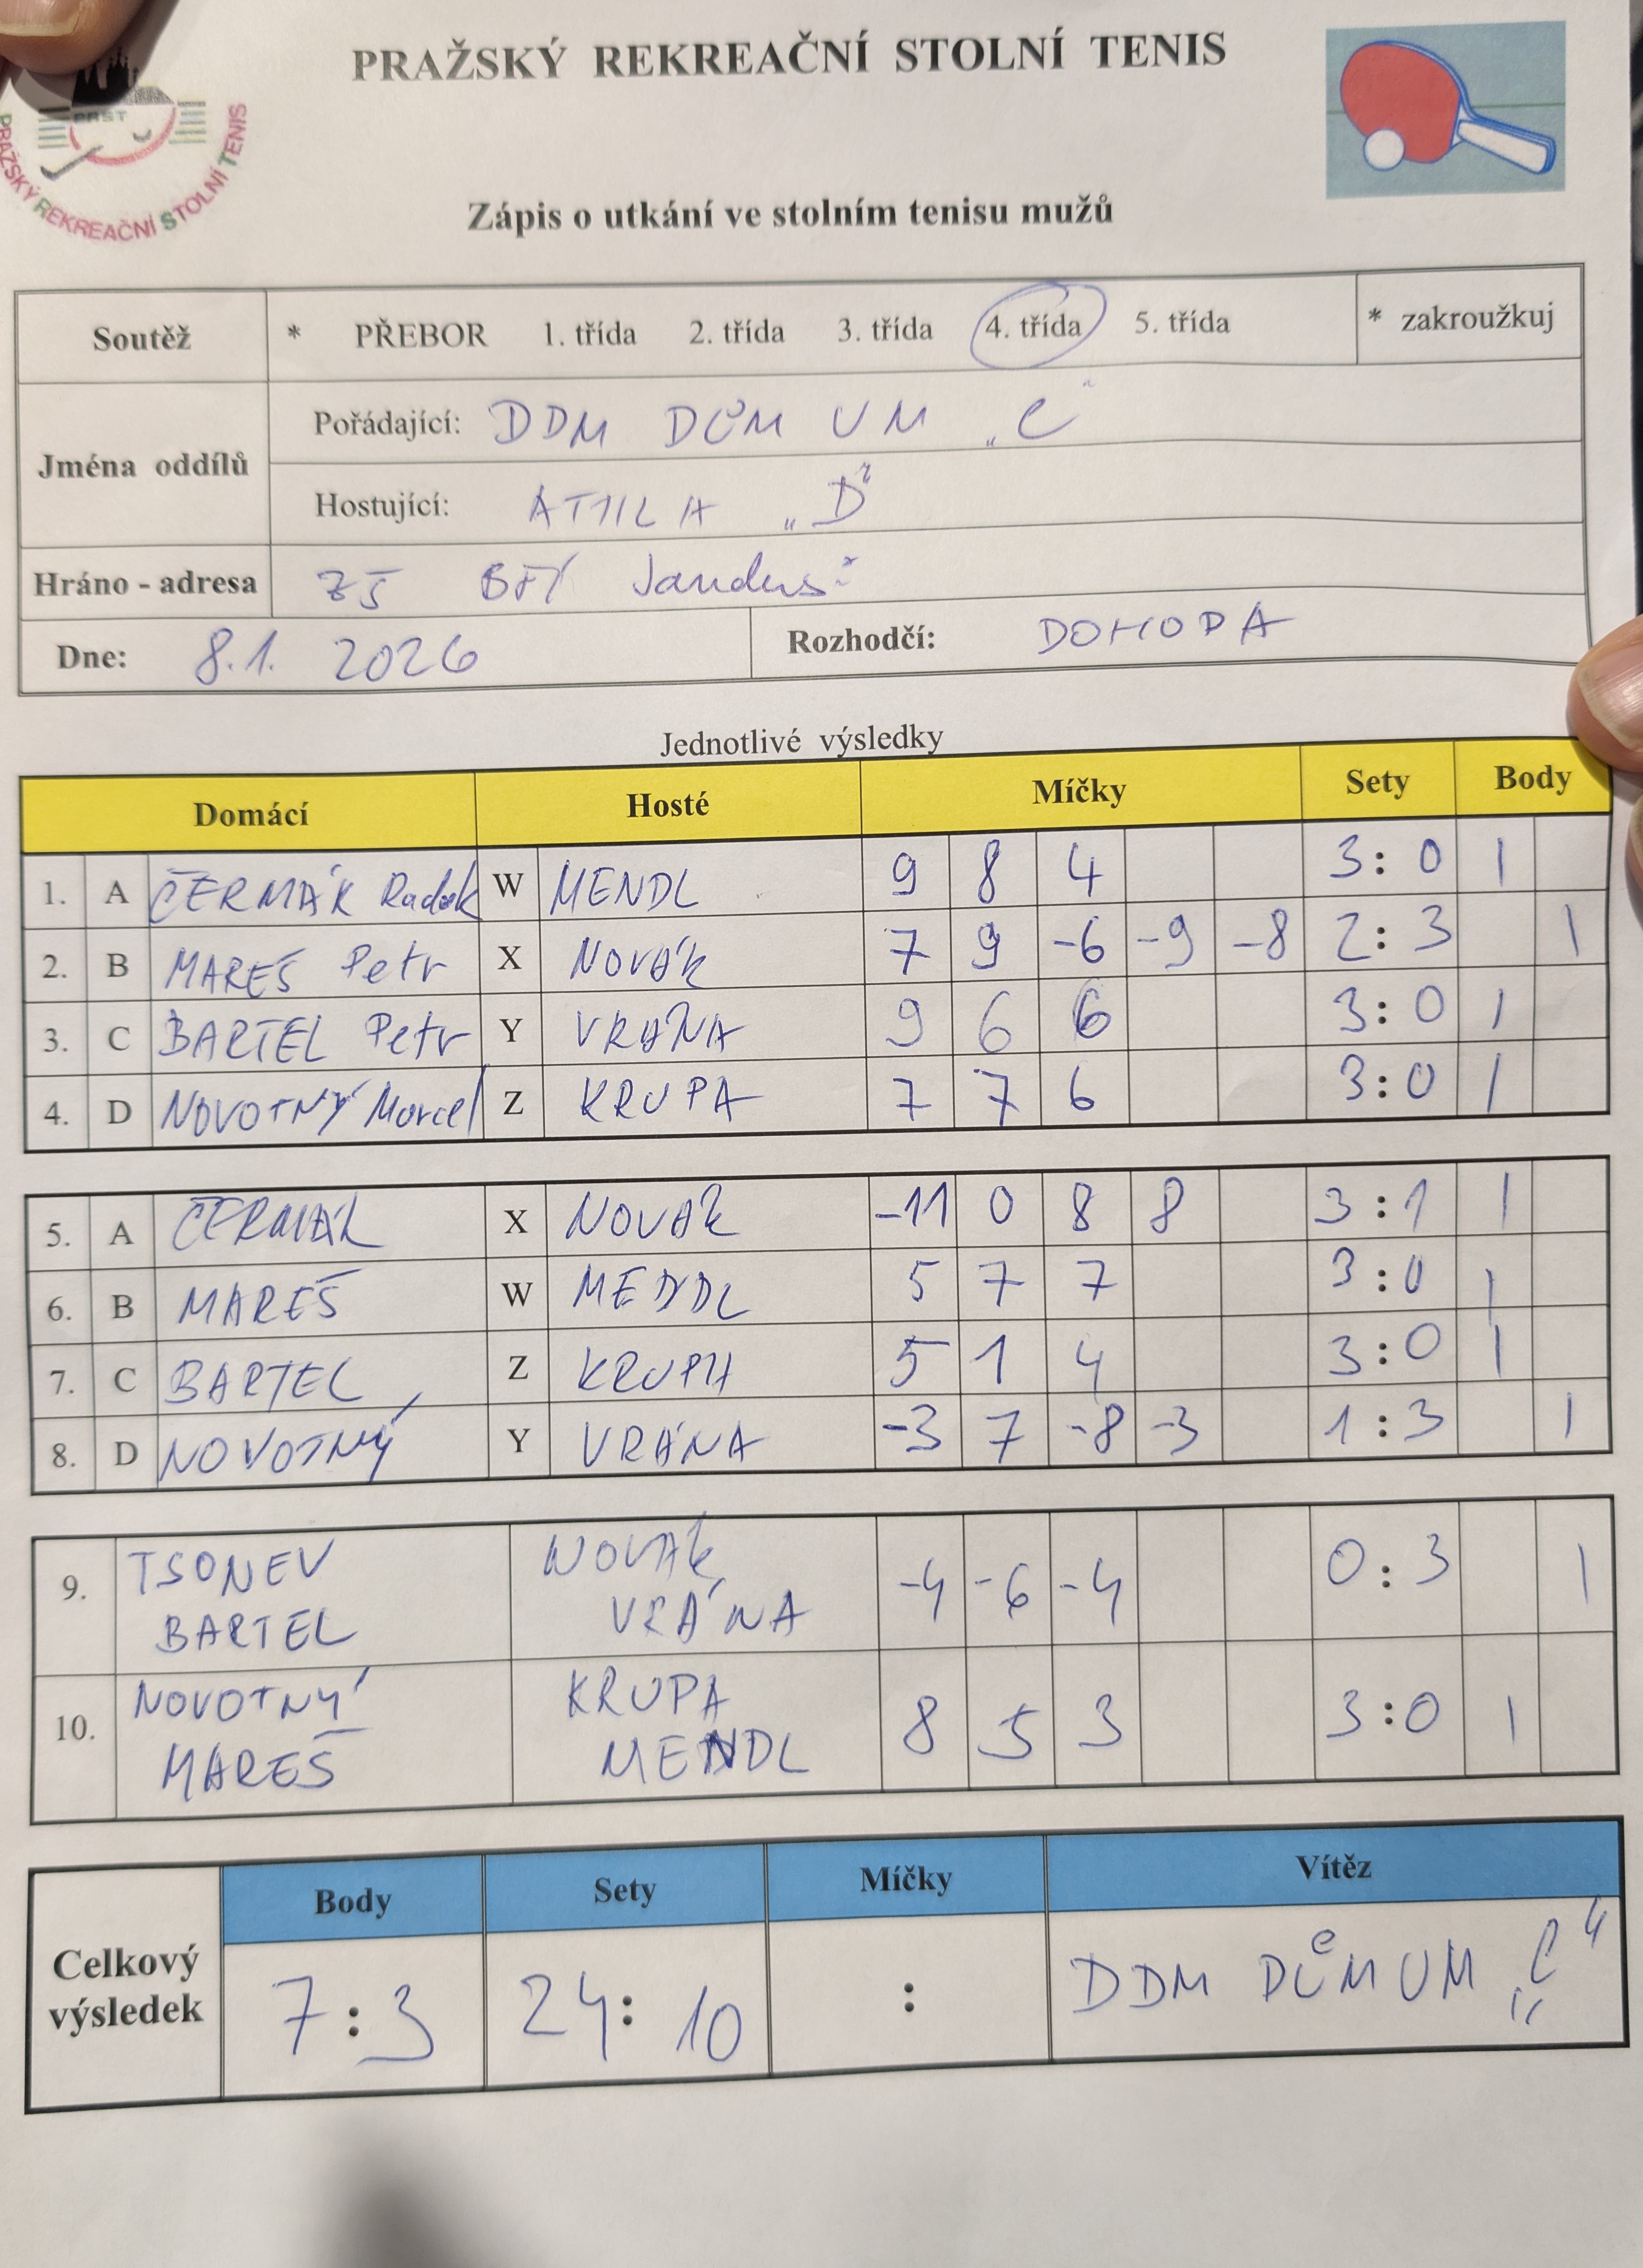 PRAŽSKÝ REKREAČNÍ STOLNÍ TENIS
PRST
PRAŽSKÝ REKREAČNÍ STOLNÍ TENIS
Zápis o utkání ve stolním tenisu mužů
Soutěž * PŘEBOR 1. třída 2. třída 3. třída 4. třída 5. třída * zakroužkuj
Jména oddílů
Pořádající: DDM DŮM UM „C"
Hostující: ATIILA „D"
Hráno - adresa ZŠ BŘÍ Jandusů
Dne: 8.1. 2026 Rozhodčí: DOHODA
Jednotlivé výsledky
Domácí Hosté Míčky Sety Body
1. A ČERMÁK Radek W MENDL 9 8 4 3:0 1
2. B MAREŠ Petr X NOVÁK 7 9 -6 -9 -8 2:3 1
3. C BARTEL Petr Y VRÁNA 9 6 6 3:0 1
4. D NOVOTNÝ Marcel Z KRUPA 7 7 6 3:0 1
5. A ČERMÁK X NOVÁK -11 0 8 8 3:1 1
6. B MAREŠ W MENDL 5 7 7 3:0 1
7. C BARTEL Z KRUPA 5 1 4 3:0 1
8. D NOVOTNÝ Y VRÁNA -3 7 -8 -3 1:3 1
9. TSONEV NOVÁK -4 -6 -4 0:3 1
BARTEL VRÁNA
10. NOVOTNÝ KRUPA 8 5 3 3:0 1
MAREŠ MENDL
Body Sety Míčky Vítěz
Celkový výsledek 7:3 24:10 : DDM DŮM UM „C"